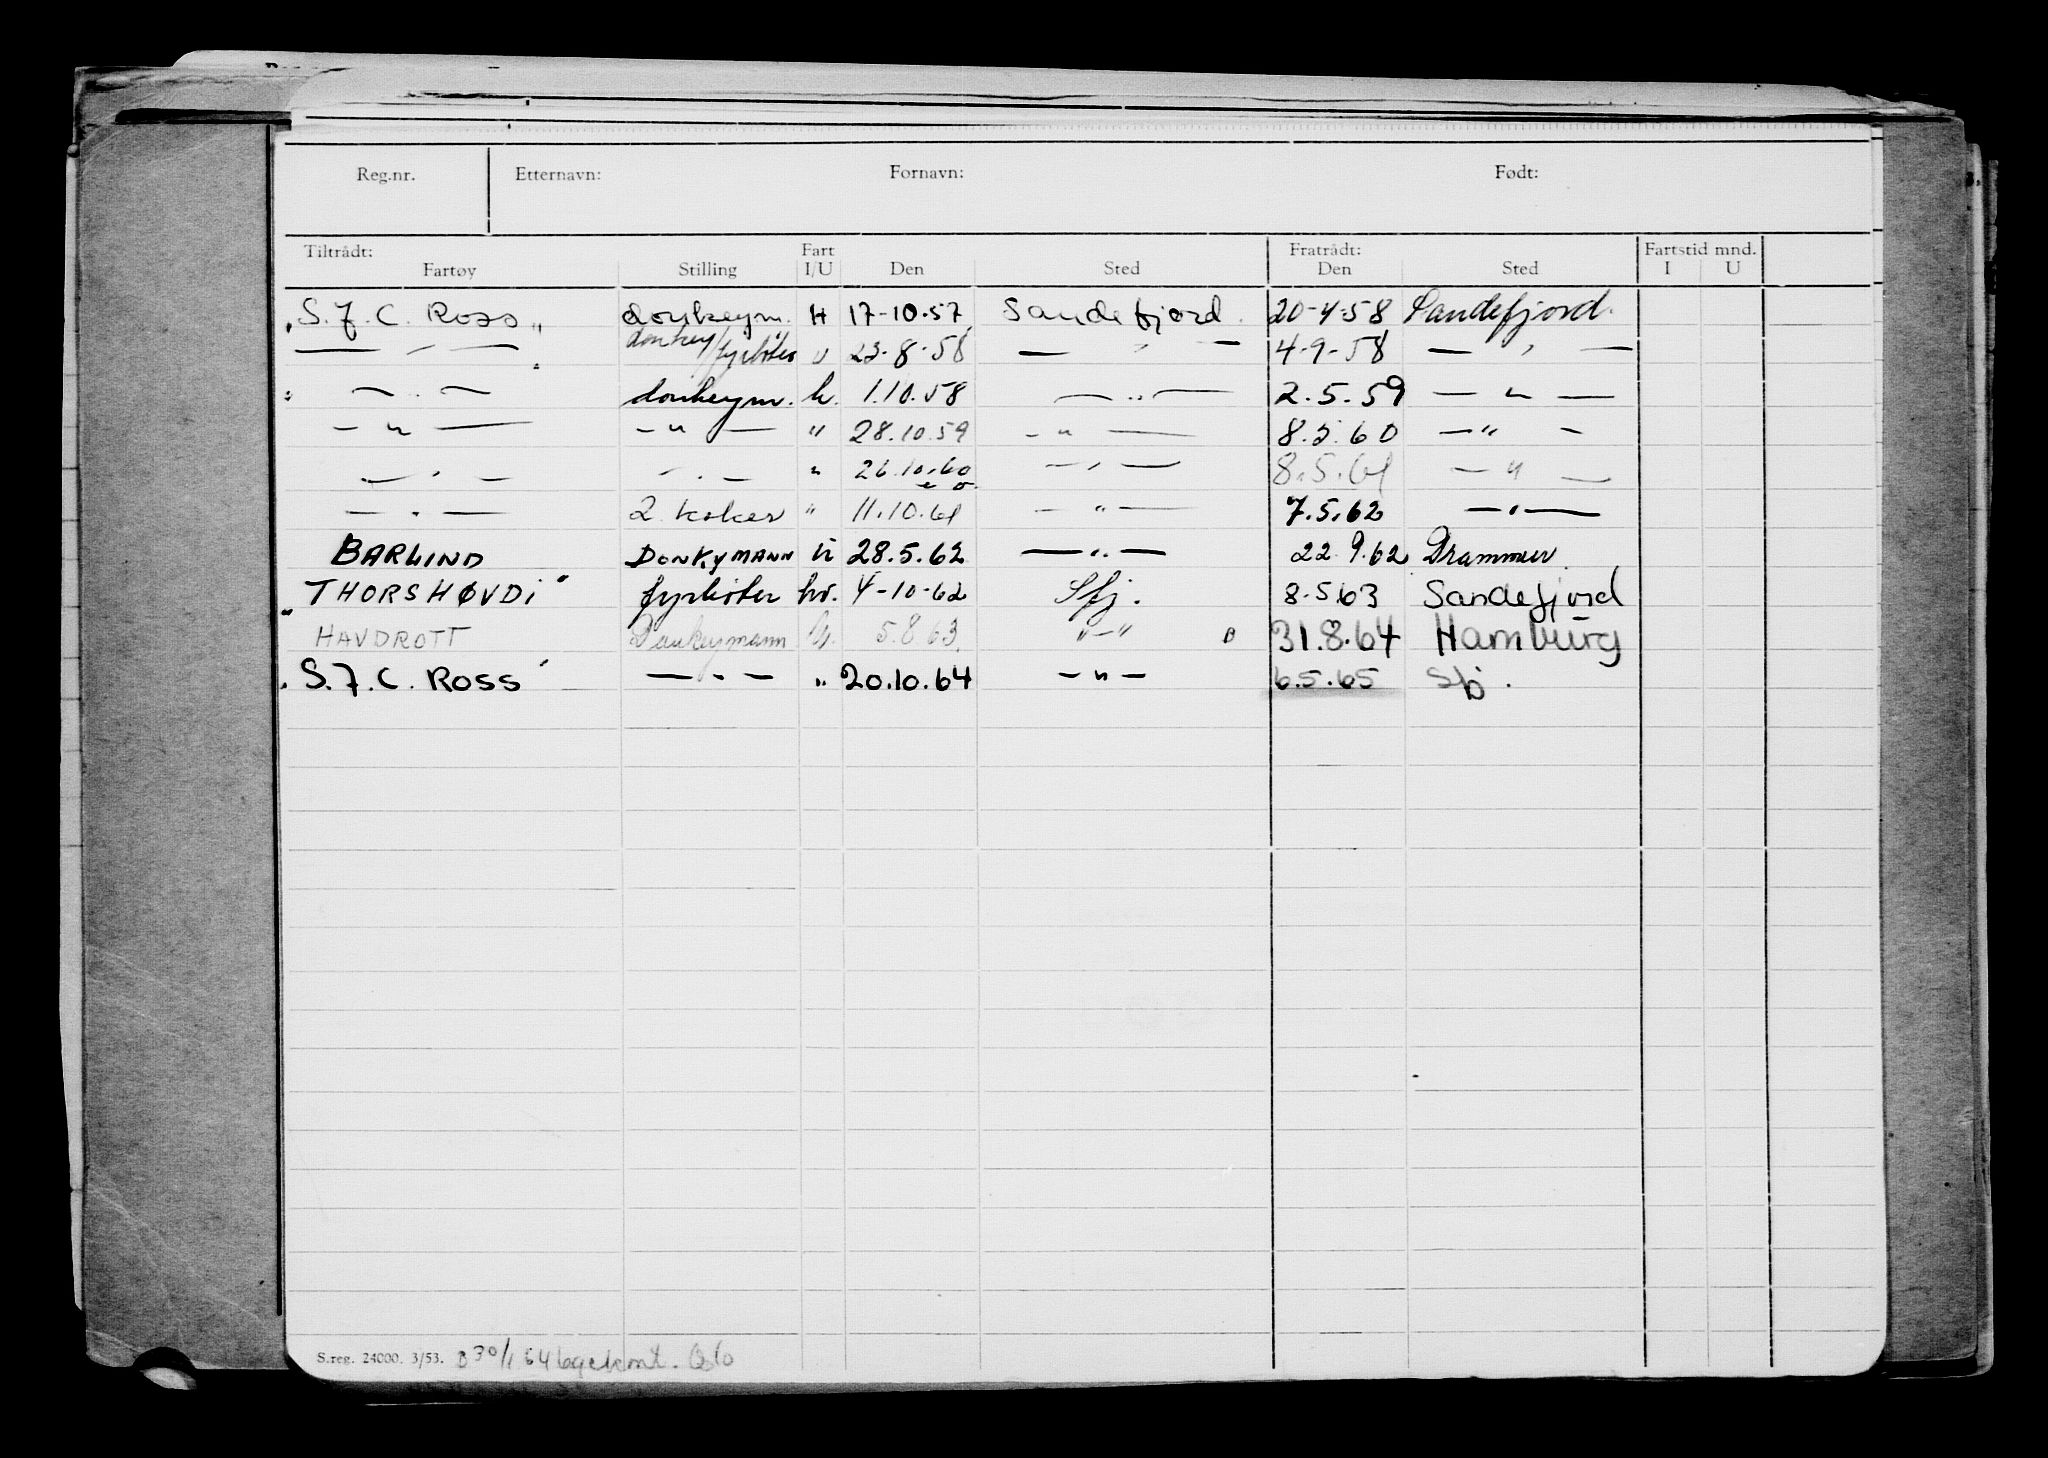 Reg.nr. Etternavn: Fornavn: Født:
Tiltrådt: Fart Fratrådt: Fartstid mnd.
Fartøy Stilling I/U Den Sted Den Sted I U
"S.J.C. Ross" donkeym. H 17-10-57 Sandefjord. 20-4-58 Sandefjord.
— " — donkey/fyrbøter U 23-8-58 — " — 4-9-58 — " —
— " — donkeym. h. 1.10.58 — " — 2.5.59 — " —
— " — — " — " 28.10.59 — " — 8.5.60 — " —
— " — — " — " 26.10.60 — " — 8.5.61 — " —
— " — 2. koker " 11.10.61 — " — 7.5.62 — " —
BARLIND DONKYMANN U 28.5.62 — " — 22.9.62 Drammen.
"THORSHØVDI" fyrbøter hv. 4-10-62 Sfj. 8.5.63 Sandefjord
HAVDROTT Donkeymann 5.8.63. " — " 31.8.64 Hamburg
"S.J.C. ROSS" — " — " 20.10.64 — " — 6.5.65 Sfj.
S.reg. 24000. 3/53. Oslo